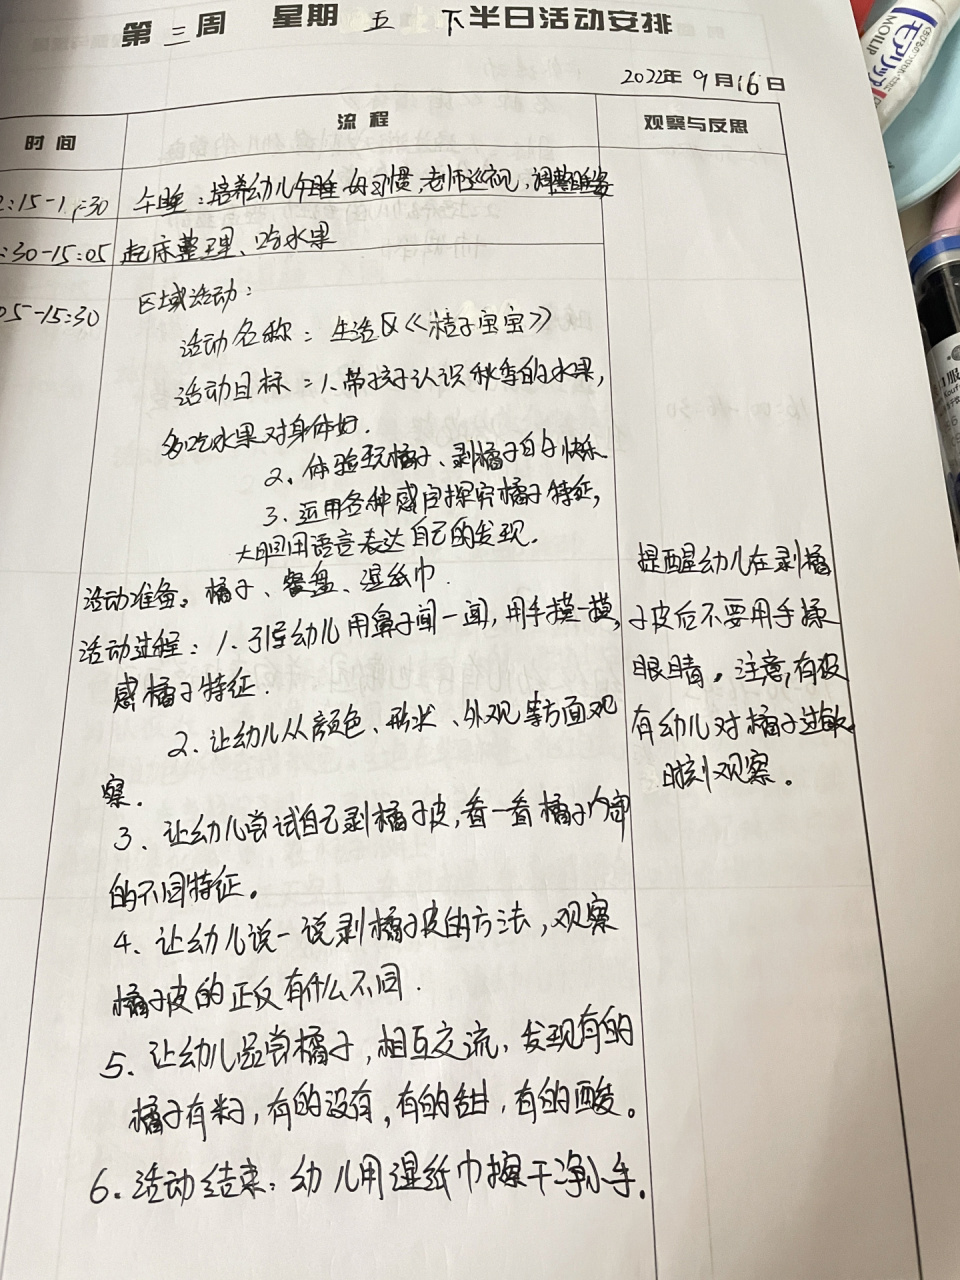 第三周 星期五 下半日活动安排
2022年9月16日
时间 流程 观察与反思
2:15-1:30 午睡：培养幼儿午睡好习惯，老师巡视，调整睡姿
:30-15:05 起床整理、吃水果
05-15:30 区域活动：
活动名称：生活区《桔子宝宝》
活动目标：1、带孩子认识秋季的水果，
多吃水果对身体好.
2、体验玩橘子、剥橘子自个快乐
3、运用各种感官探究橘子特征，
大胆用语言表达自己的发现.
活动准备：橘子、餐盘、湿纸巾.
活动过程：1、引导幼儿用鼻子闻一闻，用手摸一摸，
感橘子特征.
2、让幼儿从颜色、形状、外观等方面观
察.
3、让幼儿尝试自己剥橘子皮，看一看橘子内部
的不同特征。
4、让幼儿说一说剥橘子皮的方法，观察
橘子皮的正反有什么不同.
5、让幼儿品尝橘子，相互交流，发现有的
橘子有籽，有的没有，有的甜，有的酸。
6、活动结束：幼儿用湿纸巾擦干净小手.
提醒幼儿在剥橘
子皮后不要用手揉
眼睛。注意，有没
有幼儿对橘子过敏
时刻观察。
モアリップ
MOILIP